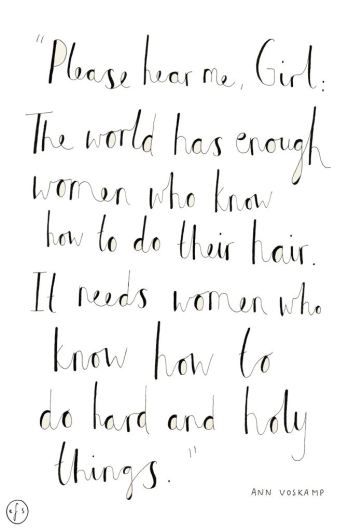 "Please hear me, Girl:
The world has enough
women who know
how to do their hair.
It needs women who
know how to
do hard and holy
things."
ANN VOSKAMP
efs